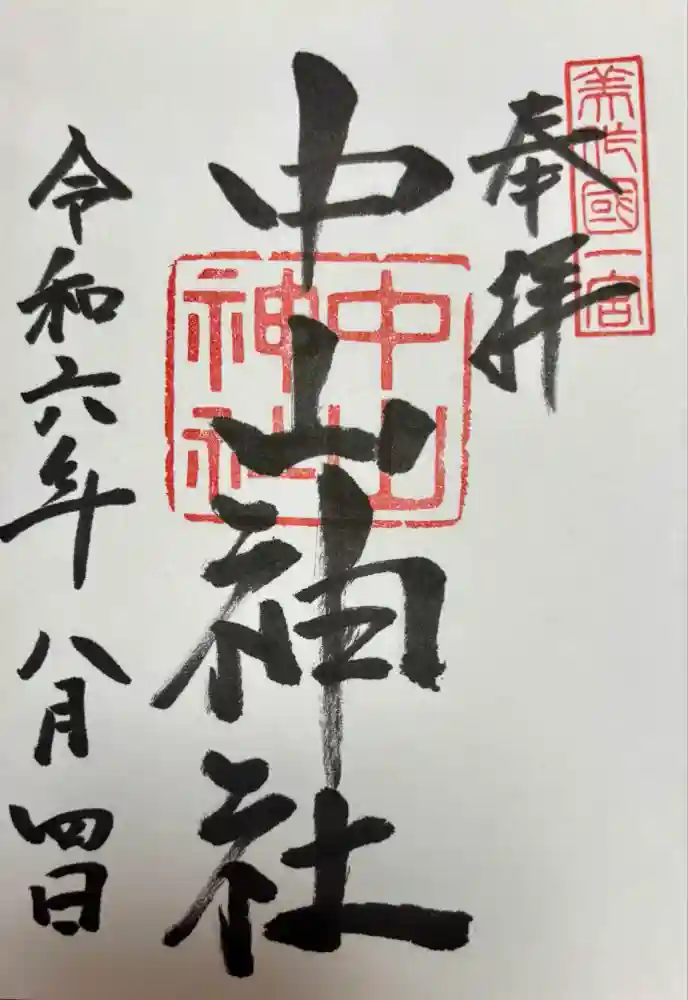 奉拝
美作國一宮
中山神社
中山
神社
令和六年八月四日